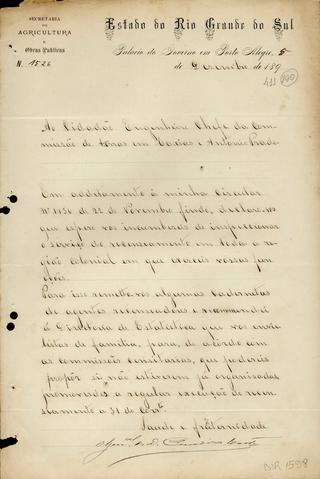 SECRETARIA
DE
AGRICULTURA
E
Obras Publicas
N. 1526
Estado do Rio Grande do Sul
Palacio do Governo em Porto Alegre, 5
de Dezembro de 189
411
Ao Cidadão Engenheiro Chefe da Com-
missão de terras em Caxias e Antonio Prado
Em additamento á minha circular
Nº 1131 de 22 de Novembro findo, declaro-vos
que espero vos incumbireis de inspeccionar
o serviço de recenseamento em toda a re-
gião colonial em que exerceis vossas func-
ções.
Para isso remetto-vos algumas cadernetas
de agentes recenseadores e
á Directoria de Estatistica que vos envie
listas de familia, para, de accôrdo com
as commissões censitarias, que podereis
propôr si não estiverem já organisadas,
promoverdes a regular execução do recen-
seamento a 31 do corrte.
Saude e fraternidade
NR 1598